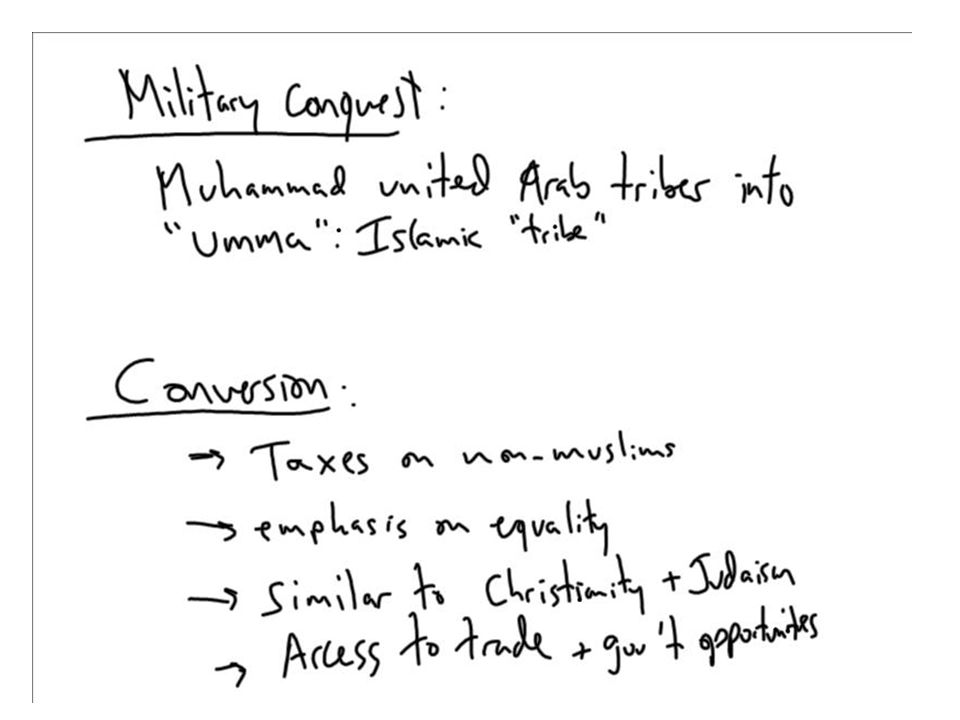 Military Conquest:
Muhammad united Arab tribes into
"Umma": Islamic "tribe"
Conversion:
→ Taxes on non-muslims
→ emphasis on equality
→ Similar to Christianity + Judaism
→ Access to trade + gov't opportunites